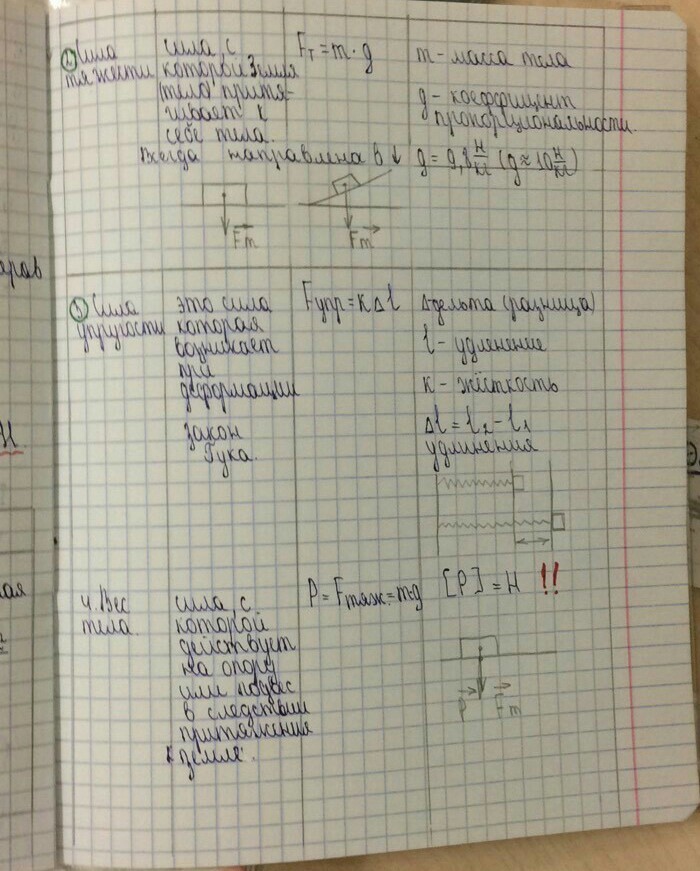 2. Сила
тяжести
сила, с
которой Земля
(тело) притя-
гивает к
себе тела.
Всегда направлена в ↓
Fт = m · g
m - масса тела
g - коеффицент
пропорциональности.
g = 9,8 Н/кг (g ≈ 10 Н/кг)
Fm
Fm
3. Сила
упругости
это сила
которая
возникает
при
деформации
закон
Гука.
Fупр = кΔl
Δ дельта (разница)
l - удленение
к - жёсткость
Δl = l₂ - l₁
удлинения
4. Вес
тела.
сила, с
которой
действует
на опору
или подвес
в следствии
притяжения
к земле.
P = Fтяж = m·g
[P] = Н !!
P
Fm
аров
Н.
ая
Э